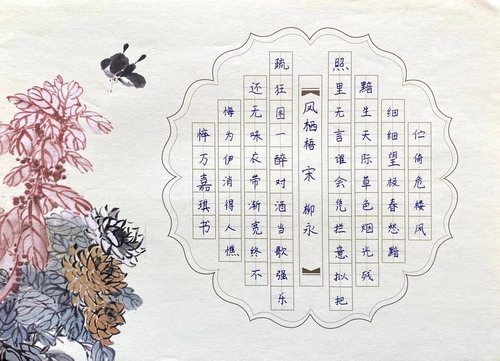 伫倚危楼风
细细望极春愁黯
黯生天际草色烟光残
照里无言谁会凭拦意拟把
凤栖梧 宋 柳永
疏狂图一醉对酒当歌强乐
还无味衣带渐宽终不
悔为伊消得人憔
悴万嘉琪书